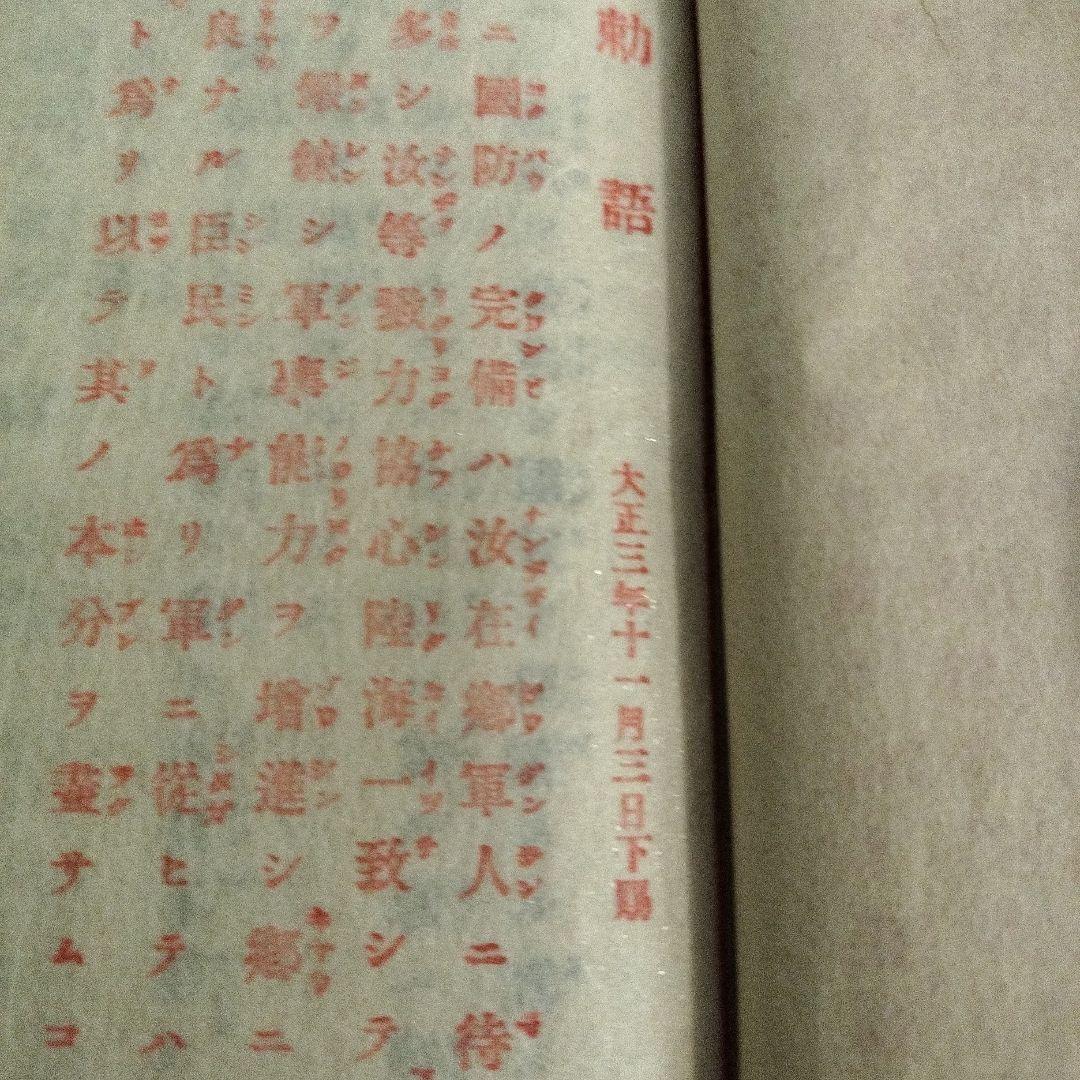 勅語 大正三年十一月三日下賜
ニ國防ノ完備ハ汝在鄕軍人ニ待
多シ汝等戮力協心陸海一致シテ
ヲ練シ軍事能力ヲ增進シ鄕ニ
良ナル臣民ト爲リ軍ニ從ヒテハ
ト爲ヲ以テ其ノ本分ヲ盡サムコ